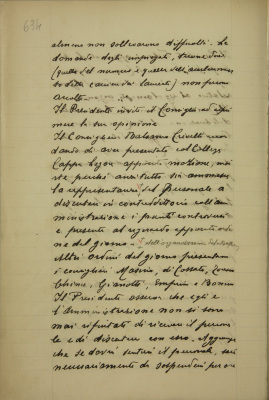 634
almeno non sollevarono difficoltà. Le
domande degli impiegati, tranne due
(quella del numero e quella dell'aumento
di dette carriera laurea) non furono
accolte.
Il Presidente invita il Consiglio ad espri
mere la sua opinione
Il Consigliere Balsamo Crivelli ricor
dando di aver presentato col Collega
Cappa Legora apposita mozione, insi
ste perché anzitutto sia ammessa
la rappresentanza del personale a
discutere in contraddittorio coll'am
ministrazione i punti controversi
e presenta al riguardo apposito ordi
ne del giorno
Altri ordini del giorno presentano
i consiglieri Masino, di Cossato,
Gianotti, e Bonino
Il Presidente osserva che egli e
l'Amministrazione non si sono
mai rifiutati di ricevere il persona
le e di discutere con esso. Aggiunge
che se dovrà sentire il personale, sarà
necessariamente da sospendere per ora